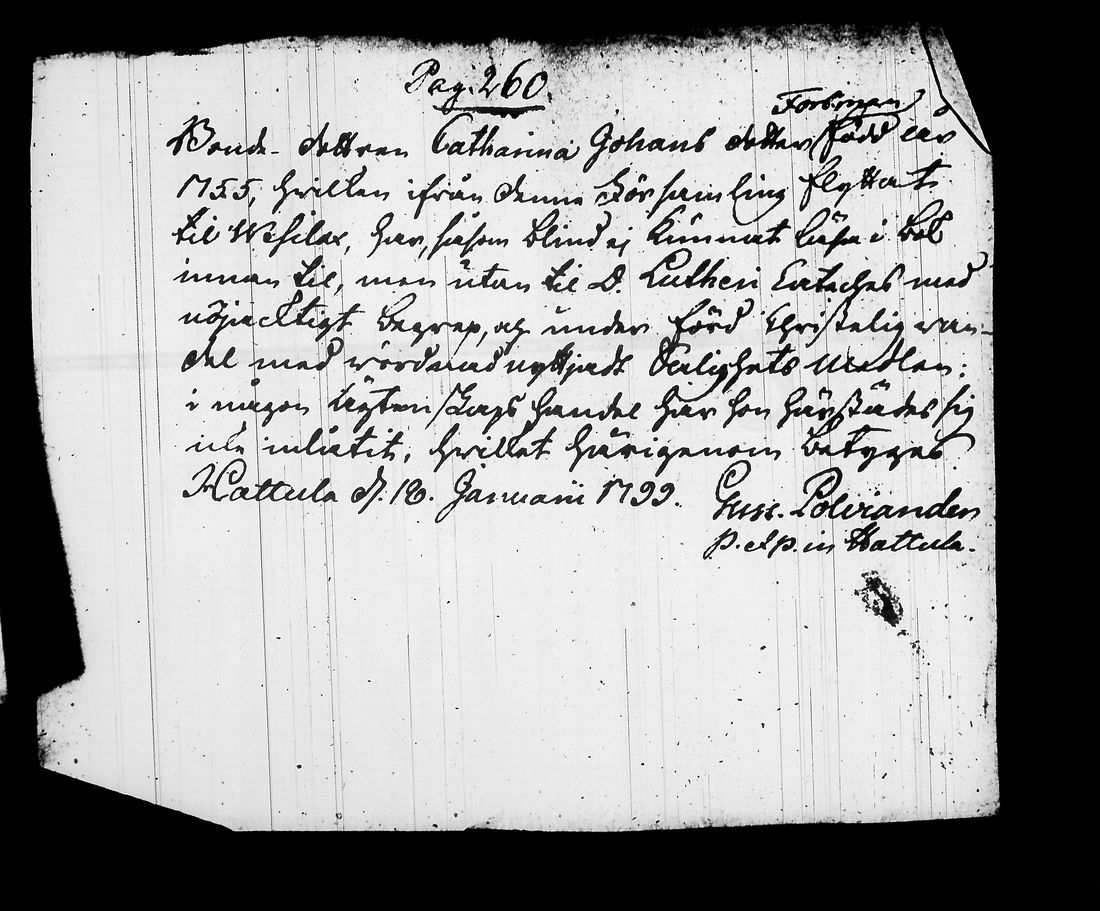 Pag. 260.
Bonde-dottren Catharina Johans dotter född år
1755, hvilken ifrån denne Församling flyttat
til Wesilax, har, såsom blind ej kunnat läsa i bok
innan til, men utan til D. Lutheri Cateches med
nöjacktigt begrep, och under förd Christelig wan-
del med wördnad nyttjadt Salighets medlen;
i någon Ägtenskaps handel har hon härstädes sig
icke inlåtit, hvilket härigenom betyges.
Hattula d. 18. Januarii 1799.
Polviander
p. et p. in Hattula.